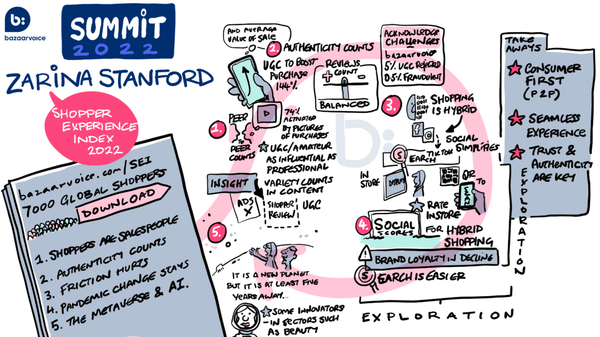 b:
bazaarvoice
SUMMIT
2022
ZARINA STANFORD
SHOPPER
EXPERIENCE
INDEX
2022
bazaarvoice.com/SEI
7000 GLOBAL SHOPPERS
DOWNLOAD
1. SHOPPERS ARE SALESPEOPLE
2. AUTHENTICITY COUNTS
3. FRICTION HURTS
4. PANDEMIC CHANGE STAYS
5. THE METAVERSE & A.I.
AND AVERAGE
VALUE OF SALE
2. AUTHENTICITY COUNTS
UGC TO BOOST
PURCHASE
144%
REVIEWS
COUNT
BALANCED
ACKNOWLEDGE
CHALLENGES
5% UGC REJECTED
0.5% FRAUDULENT
1.
PEER
TO
PEER
COUNTS
74%
ACTIVATED
BY PICTURES
OF PURCHASES
UGC/AMATEUR
AS INFLUENTIAL AS
PROFESSIONAL
INSIGHT
VARIETY COUNTS
IN CONTENT
ADS
X
SHOPPER
REVIEW
UGC
5.
IT IS A NEW PLANET
BUT IT IS AT LEAST FIVE
YEARS AWAY...
SOME INNOVATORS
IN SECTORS SUCH
AS BEAUTY
3.
SHOPPING
IS HYBRID
SOCIAL
SIMPLIFIES
SEARCH
TIKTOK
IN
STORE
QR
TO
RATE
INSTORE
4.
SOCIAL
SCORES
FOR HYBRID
SHOPPING
BRAND LOYALTY IN DECLINE
SEARCH IS EASIER
EXPLORATION
EXPLORATION
TAKE
AWAYS
CONSUMER
FIRST
(P2P)
SEAMLESS
EXPERIENCE
TRUST &
AUTHENTICITY
ARE KEY
b: